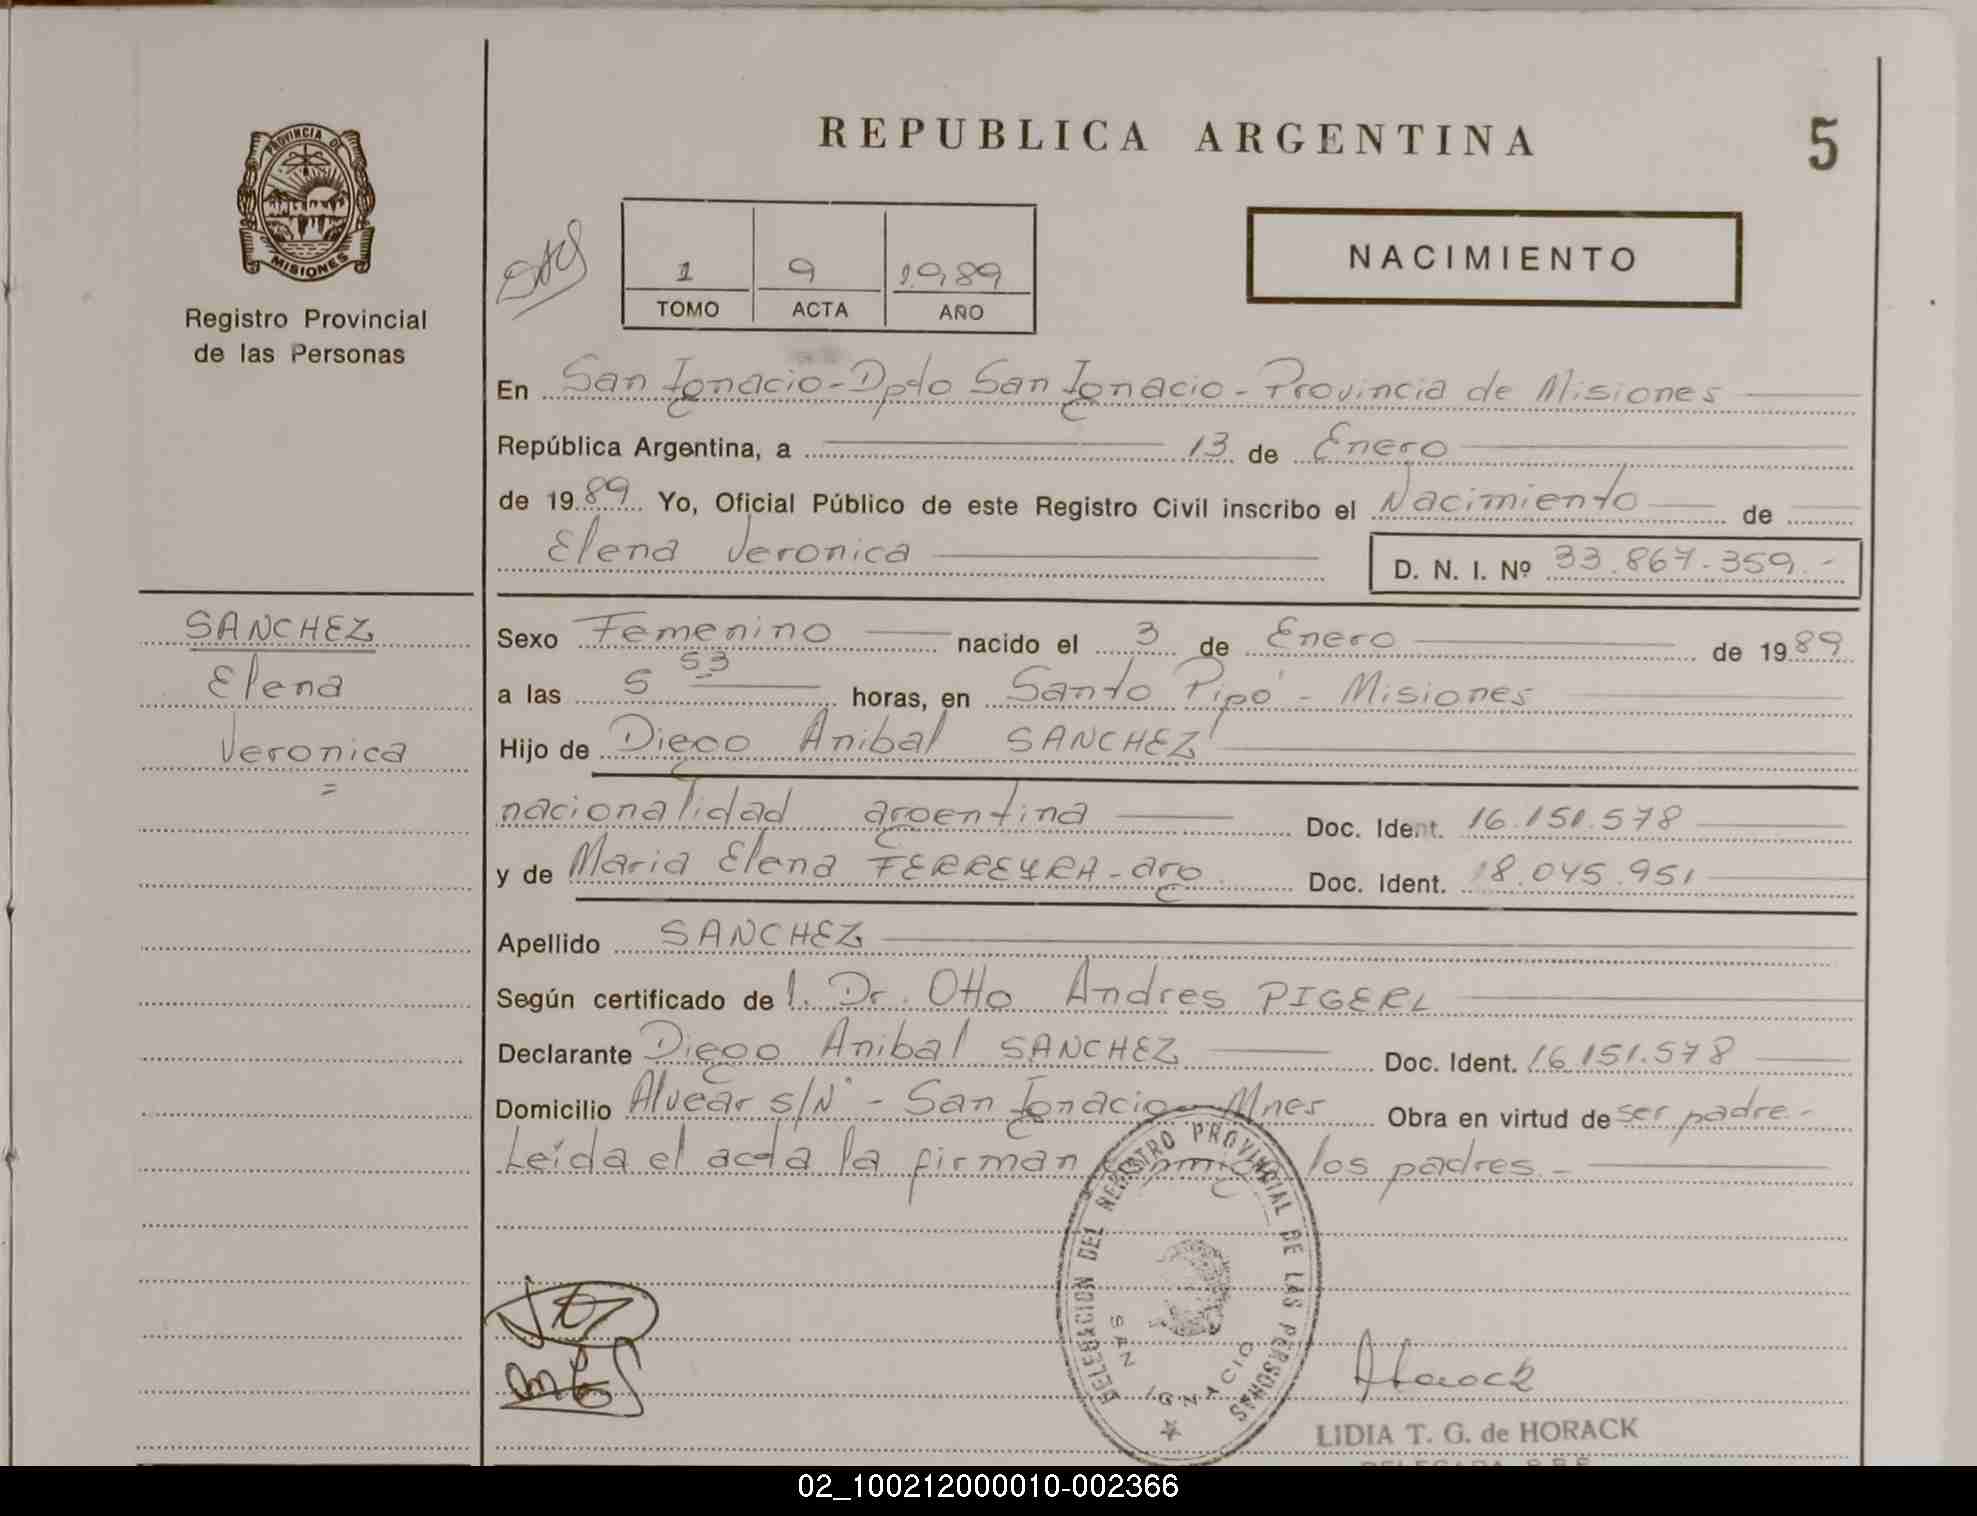 REPUBLICA ARGENTINA
5
PROVINCIA DE
MISIONES
Registro Provincial
de las Personas
1 9 1989
TOMO ACTA AÑO
NACIMIENTO
En San Ignacio - Dpto San Ignacio - Provincia de Misiones
República Argentina, a 13 de Enero
de 1989 Yo, Oficial Público de este Registro Civil inscribo el Nacimiento de
Elena Veronica D. N. I. Nº 33.867.359.-
SANCHEZ
Elena
Veronica
=
Sexo Femenino nacido el 3 de Enero de 1989
a las 5 53 horas, en Santo Pipó - Misiones
Hijo de Diego Anibal SANCHEZ
nacionalidad argentina Doc. Ident. 16.151.578
y de Maria Elena FERREYRA - arg Doc. Ident. 18.045.951
Apellido SANCHEZ
Según certificado de l. Dr. Otto Andres PIGERL
Declarante Diego Anibal SANCHEZ Doc. Ident. 16.151.578
Domicilio Alvear s/Nº - San Ignacio - Mnes Obra en virtud de ser padre.-
Leída el acta la firman conmigo los padres.-
DELEGACION DEL REGISTRO PROVINCIAL DE LAS PERSONAS
SAN IGNACIO
Horack
LIDIA T. G. de HORACK
02_100212000010-002366